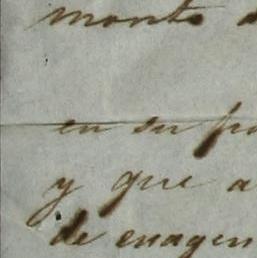 monto
en su
y que a
de enagen